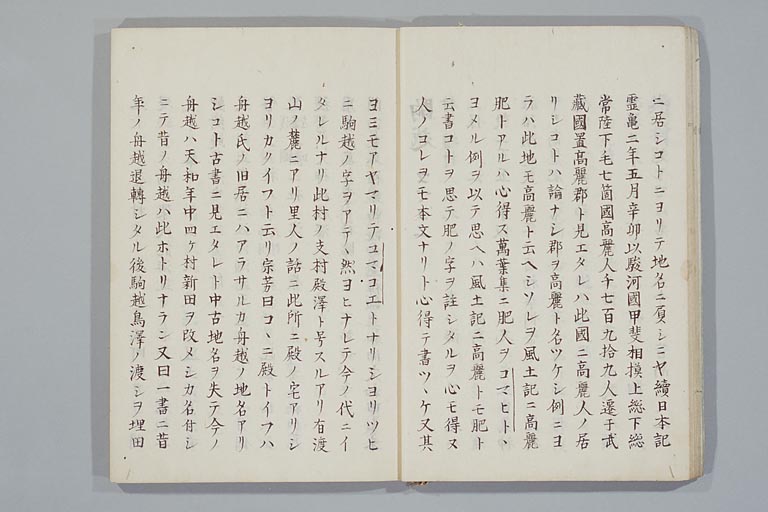 ニ居シコトニヨリテ地名ニ負シニヤ續日本記
霊亀二年五月辛卯以駿河國甲斐相摸上総下総
常陸下毛七箇國高麗人千七百九拾九人遷于武
藏國置高麗郡ト見エタレハ此國ニ高麗人ノ居
リシコトハ論ナシ郡ヲ高麗ト名ツケシ例ニヨ
ラハ此地モ高麗ト云ヘシソレヲ風土記ニ高麗
肥トアルハ心得ス萬葉集ニ肥人ヲコマヒトヽ
ヨメル例ヲ以テ思ヘハ風土記ニ高麗トモ肥ト
云書コトヲ思テ肥ノ字ヲ註シタルヲ心モ得ヌ
人ノコレヲモ本文ナリト心得テ書ツヽケ又其
ヨミモアヤマリテコマコエトナリシヨリツヒ
ニ駒越ノ字ヲアテヽ然ヨヒナレテ今ノ代ニイ
タレルナリ此村ノ支村殿澤ト号スルアリ有渡
山ノ麓ニアリ里人ノ話ニ此所ニ殿ノ宅アリシ
ヨリカクイフト云リ宗芳曰コヽニ殿トイフハ
舟越氏ノ旧居ニハアラサルカ舟越ノ地名アリ
シコト古書ニ見エタレト中古地名ヲ失テ今ノ
舟越ハ天和年中四ヶ村新田ヲ改メシカ名付シ
ニテ昔ノ舟越ハ此ホトリナラン又曰一書ニ昔
年ノ舟越退轉シタル後駒越鳥澤ノ渡シヲ埋田